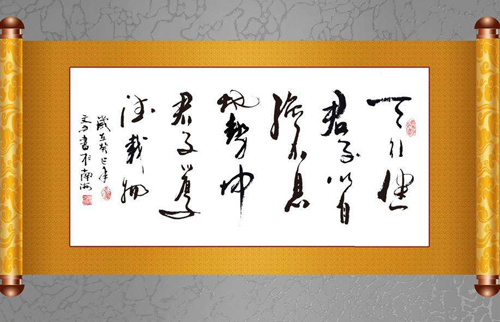 天行健
君子以自
強不息
地勢坤
君子以厚
德載物
歲在癸巳年
書於南海